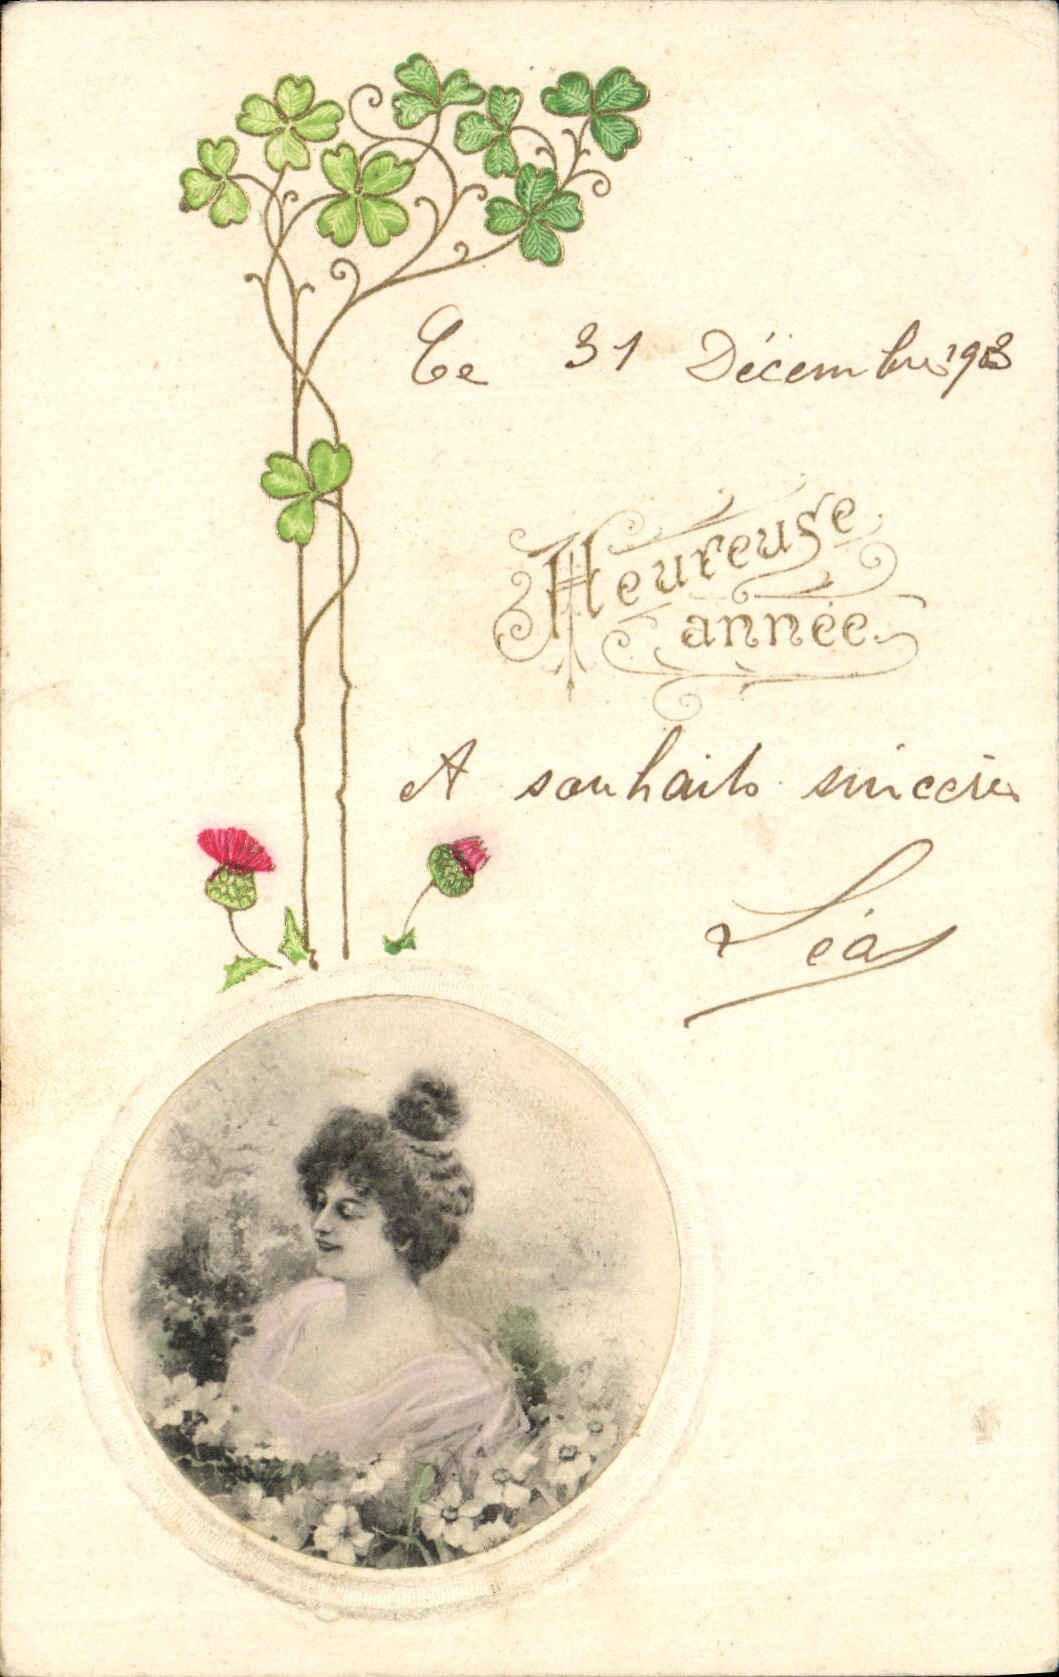 Ce 31 Décembre 1903
Heureuse
année.
A souhaits sincères
Léa